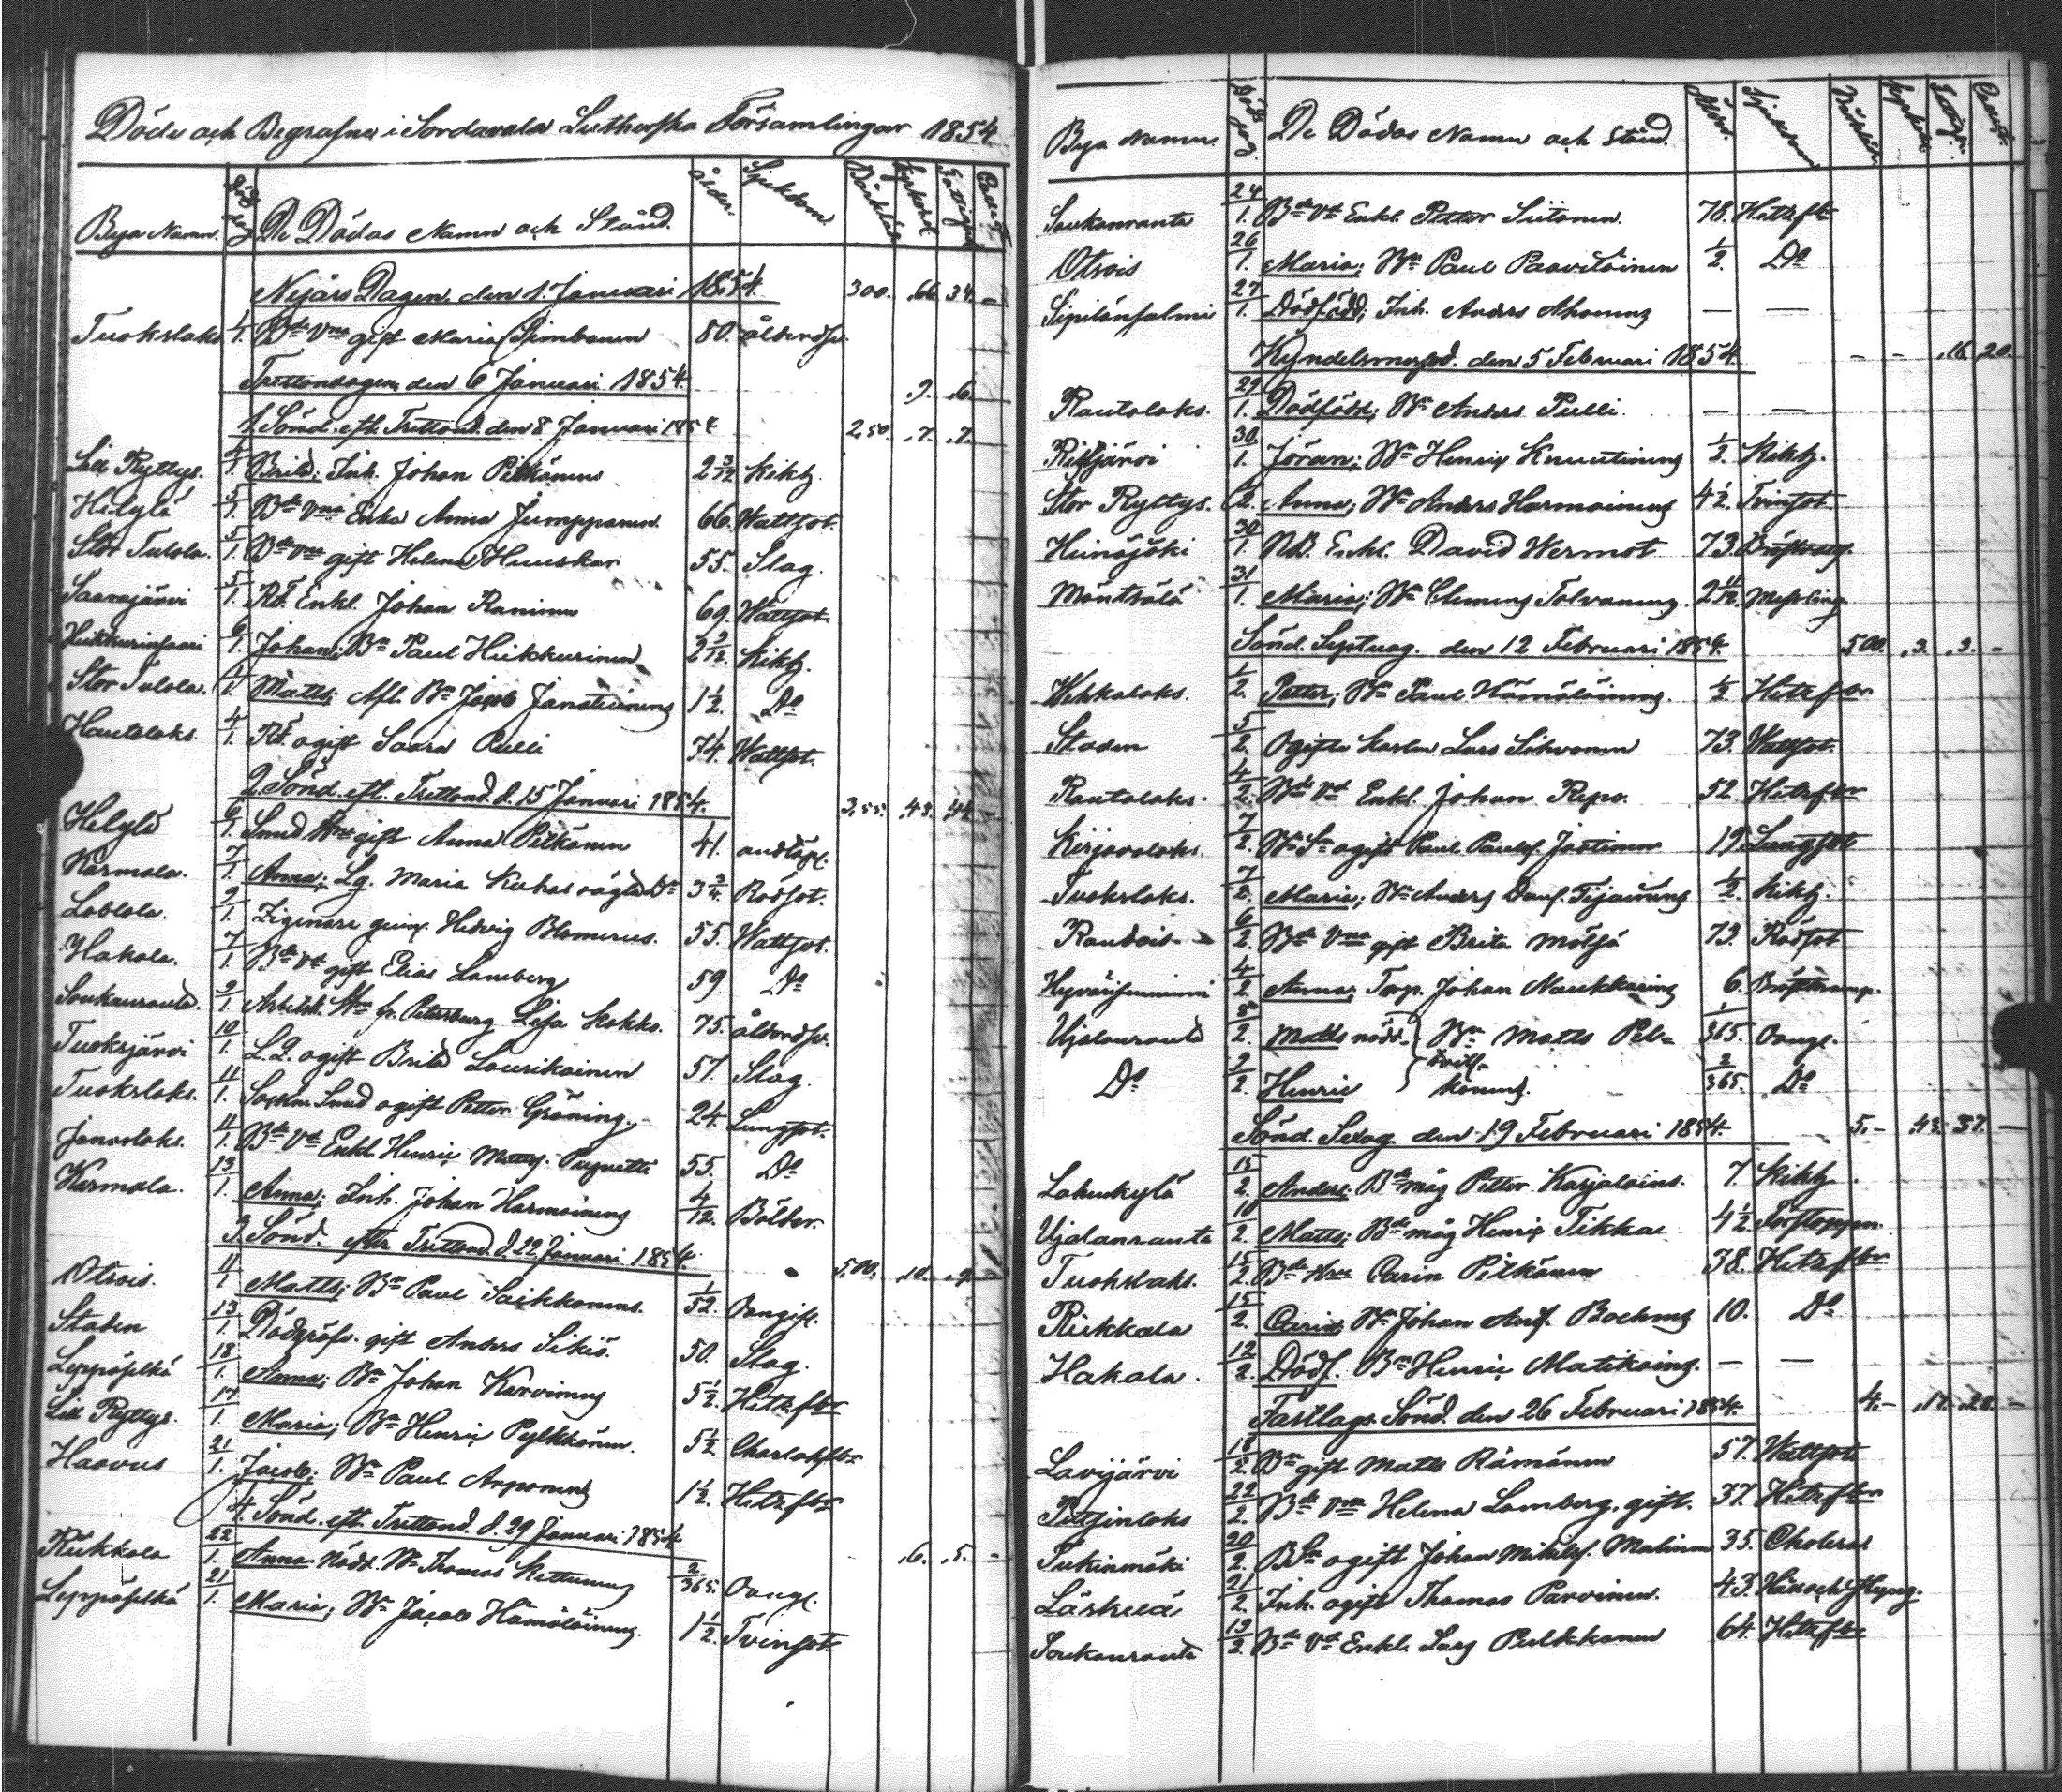 Döde och Begrafne i Sordavala Lutherska Församlingar 1854.
Bya Namn. Död dag De Dödas Namn och Stånd. ålder. Sjukdom
Nyårs Dagen den 1. Januari 1854. 300. ,66. 34. -
Tuokslaks 4/1. Bde Vna gift Maria Simbonen 80. ålderdsv.
Trettondagen den 6 Januari 1854. ,9. ,6.
1 Sönd. eft. Trettond. den 8 Januari 1854 2,50. ,7. ,7.
Lill Ryttys. 4/1. Brita; Inh. Johan Pitkänens 2 3/12 Kikh.
Helylä 5/1. Bde Vna Enka Anna Jumppanen. 66. Wattsot.
Stor Tulola. 5/1. Bde Vna gift Helena Huuskar 55. Slag.
Saanajärvi 5/1. Rf. Enkl. Johan Raninen 69. Wattsot.
6/1. Johan; Bn Paul Hiekkurinen 2 2/12 Kikh.
Stor Tulola. Matts; Afl. Bn Jacob 1 1/2. Do
4/1. Rf. ogift Saara Pulli 74. Wattsot.
2 Sönd. eft. Trettond. d. 15 Januari 1854. 3,55. ,43. ,44
Helylä 6/1. Smed Hru gift Anna Pitkänen 41. andtäpl.
Karmala. 7/1. Anna; Lg. Maria Kuhas oägta dr 3 3/4. Rödsot.
9/1. Zigenare Hedvig Blomerus. 55. Wattsot.
Hakala. 7/1. Bde Vd gift Elias Lamberg 59 Do
Soukanranta. 9/1. fr. Petersburg Lisa Kokko. 75. ålderdsv.
Tuoksjärvi 10/1. L.D. ogift Brita Laurikainen 57. Slag.
Tuokslaks. 11/1. Sockn. Smed ogift Petter Gröning. 24. Lungsot.
Janaslaks. 11/1. Bde Vd Enkl. Henric Matts. 55. Do
Karmala. 13/1. Anna; Inh. Johan Harmoinens 4/12. Bölder.
3. Sönd. eftr Trettond. d. 22. Januari 1854. 5,00. ,10. ,9.
Otsois. 11/1 Matts; Bn Paul Saikkonens. 1/52. Oangifl.
Staden 13/1. Dödgräfv. gift Anders Sikiö. 50. Slag.
Leppäselkä 18/1. Anna; Bn Johan Karvinens 5 1/2. Hetzfbr
Lill Ryttys. 17/1. Maria; Bn Henric Pylkkönen. 5 1/2. Charlaksfbr
Haavus 21/1. Jacob; Bn Paul Arponens 1 1/2. Hetzfbr
4. Sönd. eft. Trettond. d. 29 Januari 1854. ,6. ,5. -
Kiikkala 22/1. Anna Nödd. Bn Thomas Kettunens 2/365. Oangl.
Leppäselkä 21/1. Maria; Bn Jacob Hämäläinens. 1 1/2. Tvinsot.
Bya Namn. Döds dag De Dödas Namn och Stånd. ålder. Sjukdom
Soukanranta 24/1. Bde Vd Enkl. Petter Siitonen. 78. Hetzfbr
Otsois 26/1. Maria; Bn Paul Paavilainen 1/2. Do
Sipilänsalmi 27/1. Dödfödd; Inh. Anders Ahonens — —
Kyndelsmessod. den 5 Februari 1854. - - ,16. 20.
Rautalaks. 29/1. Dödfödd; Bn Anders Pulli. — —
30/1. Jöran; Bn Henric Knuutinens 1/2. Kikh.
Stor Ryttys. Anna; Bn Anders Harmoinens 4 1/2. Tvinsot
Heinäjoki 30/1. NB. Enkl. David Wermot 73. Bröstvärk.
Mäntsälä 31/1. Maria; Bn Clemens Tolvanens. 2 4/12. Messling
Sönd. Septuag. den 12 Februari 1854. 5,00. ,3. ,3. -
Wehkalaks. 1/2. Petter; Bn Paul Hämäläinens. 1/2. Hetzfbr
Staden 5/2. Ogifta Karlen Lars Sihvonen 73. Wattsot.
Rautalaks. 4/2. Bde Vd Enkl. Johan Repo. 52 Hetzfbr
Kirjavalaks. 7/2. Bd Sn ogift Paul Paulss. Jantinen 19. Lungsot
Tuokslaks. 7/2. Maria; Bn Anders Dans. Tijainens 1/2. Kikh.
6/2. Bde Vna gift Brita Mölsä 73. Rödsot
4/2. Anna; Torp. Johan Naukkarins 6. Bröstkramp.
Ujalanranta 8/2. Matts nödd. } Bn Matts Pit= 1/365. Oangl.
tvill.
Do 9/2. Henric } könens. 2/365. Do
Sönd. Sexag. den 19 Februari 1854. 5.- ,43. 37. —
Lahenkylä 15/2. Anders; Bde måg Petter Karjalains. 7. Kikh.
Ujalanranta 10/2. Matts; Bde måg Henric Tikka 4 1/2. Förstoppn.
Tuokslaks. 15/2. Bde Hru Carin Pitkänen 38. Hetzfbr
Kiikkala 15/2. Carin; Bn Johan And. Boehms 10. Do
Hakala. 12/2. Dödf. Bn Henric Matikains. — —
Fastlags Sönd. den 26 Februari 1854. 4.- ,17. ,28. -
Lavijärvi 18/2. Bn gift Matts Rämänen 57. Wattsot
22/2. Bde Vna Helena Lamberg, gift. 37. Hetzfbr
Sukinmäki 20/2. B.Sn ogift Johan Mikkels. Malinen 35. Cholera
Läskelä 21/2. Inh. ogift Thomas Parvinen. 43.
Soukanranta 19/2. Bde Vd Enkl. Lars Pulkkonen 64. Hetzfbr